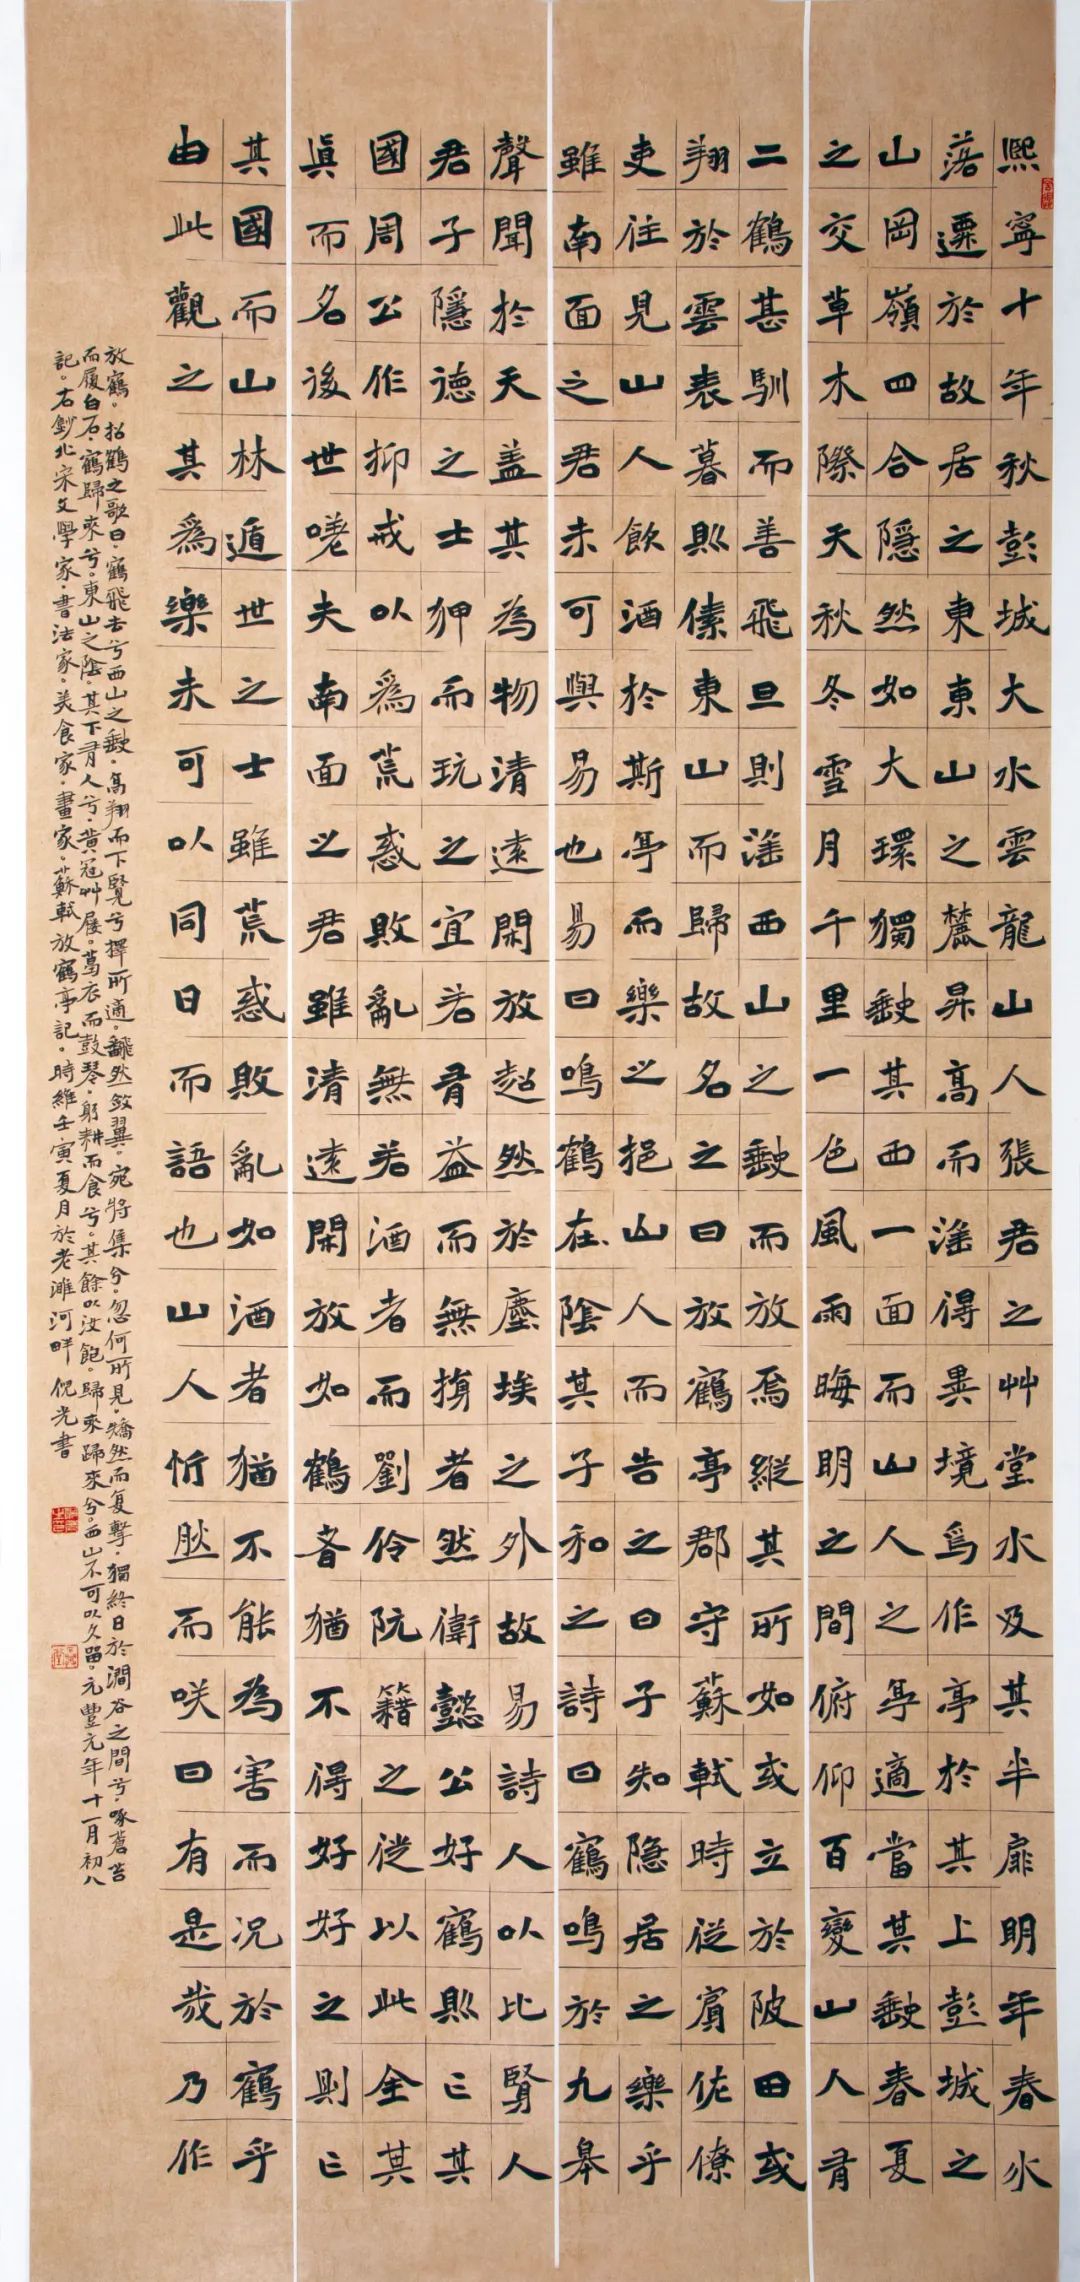 熙寧十年秋彭城大水雲龍山人張君之艸堂水及其半扉明年春水
落遷於故居之東東山之麓昇高而望得異境焉作亭於其上彭城之
山岡嶺四合隱然如大環獨缺其西一面而山人之亭適當其缺春夏
之交草木際天秋冬雪月千里一色風雨晦明之間俯仰百變山人有
二鶴甚馴而善飛旦則望西山之缺而放焉縱其所如或立於陂田或
翔於雲表暮則傃東山而歸故名之曰放鶴亭郡守蘇軾時從賓佐僚
吏往見山人飲酒於斯亭而樂之挹山人而告之曰子知隐居之樂乎
雖南面之君未可與易也易曰鳴鶴在陰其子和之詩曰鶴鳴於九皋
聲聞於天盖其為物清遠閑放超然於塵埃之外故易詩人以比賢人
君子隱德之士狎而玩之宜若有益而無損者然衛懿公好鶴則亡其
國周公作抑戒以為荒惑敗亂無若酒者而劉伶阮籍之徒以此全其
真而名後世嗟夫南面之君雖清遠閑放如鶴者猶不得好好之則亡
其國而山林遁世之士雖荒惑敗亂如酒者猶不能為害而况於鶴乎
由此觀之其為樂未可以同日而語也山人忻然而笑曰有是哉乃作
放鶴。招鶴之歌曰。鶴飛去兮西山之缺。高翔而下覽兮擇所適。翻然斂翼。宛將集兮。忽何所見。矯然而复擊。獨終日於澗谷之間兮。啄蒼苔
而履白石。鶴歸來兮。東山之陰。其下有人兮。黄冠艸屨。葛衣而鼓琴。躬耕而食兮。其餘以汝飽。歸來歸來兮。西山不可以久留。元豐元年十一月初八
記。右鈔北宋文學家。書法家。美食家。畫家。蘇軾放鶴亭記。時維壬寅夏月於老濉河畔 倪光書